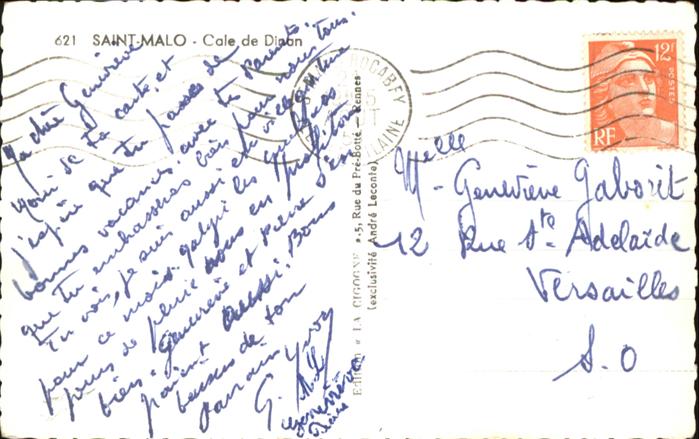 621 SAINT-MALO - Cale de Dinan
Ma chère Geneviève
Merci de ta carte, et
j'espère que tu passes de
bonnes vacances, avec tes parents
que tu embrasseras bien pour nous tous.
Tu vois, je suis aussi en villégiature
pour ce mois. malgré les quelques
jours de pluie nous en profitons
bien. Geneviève et Pierre s'en
paient aussi. Bons
baisers de ton
parrain Yvon
G.
Geneviève
Pierre
Edition "LA CIGOGNE", 5, Rue du Pré-Botté - Rennes
(exclusivité André Leconte)
ROCABEY
12F
POSTES
RF
Melle
Geneviève Gaborit
12 Rue Ste Adelaïde
Versailles
S. O